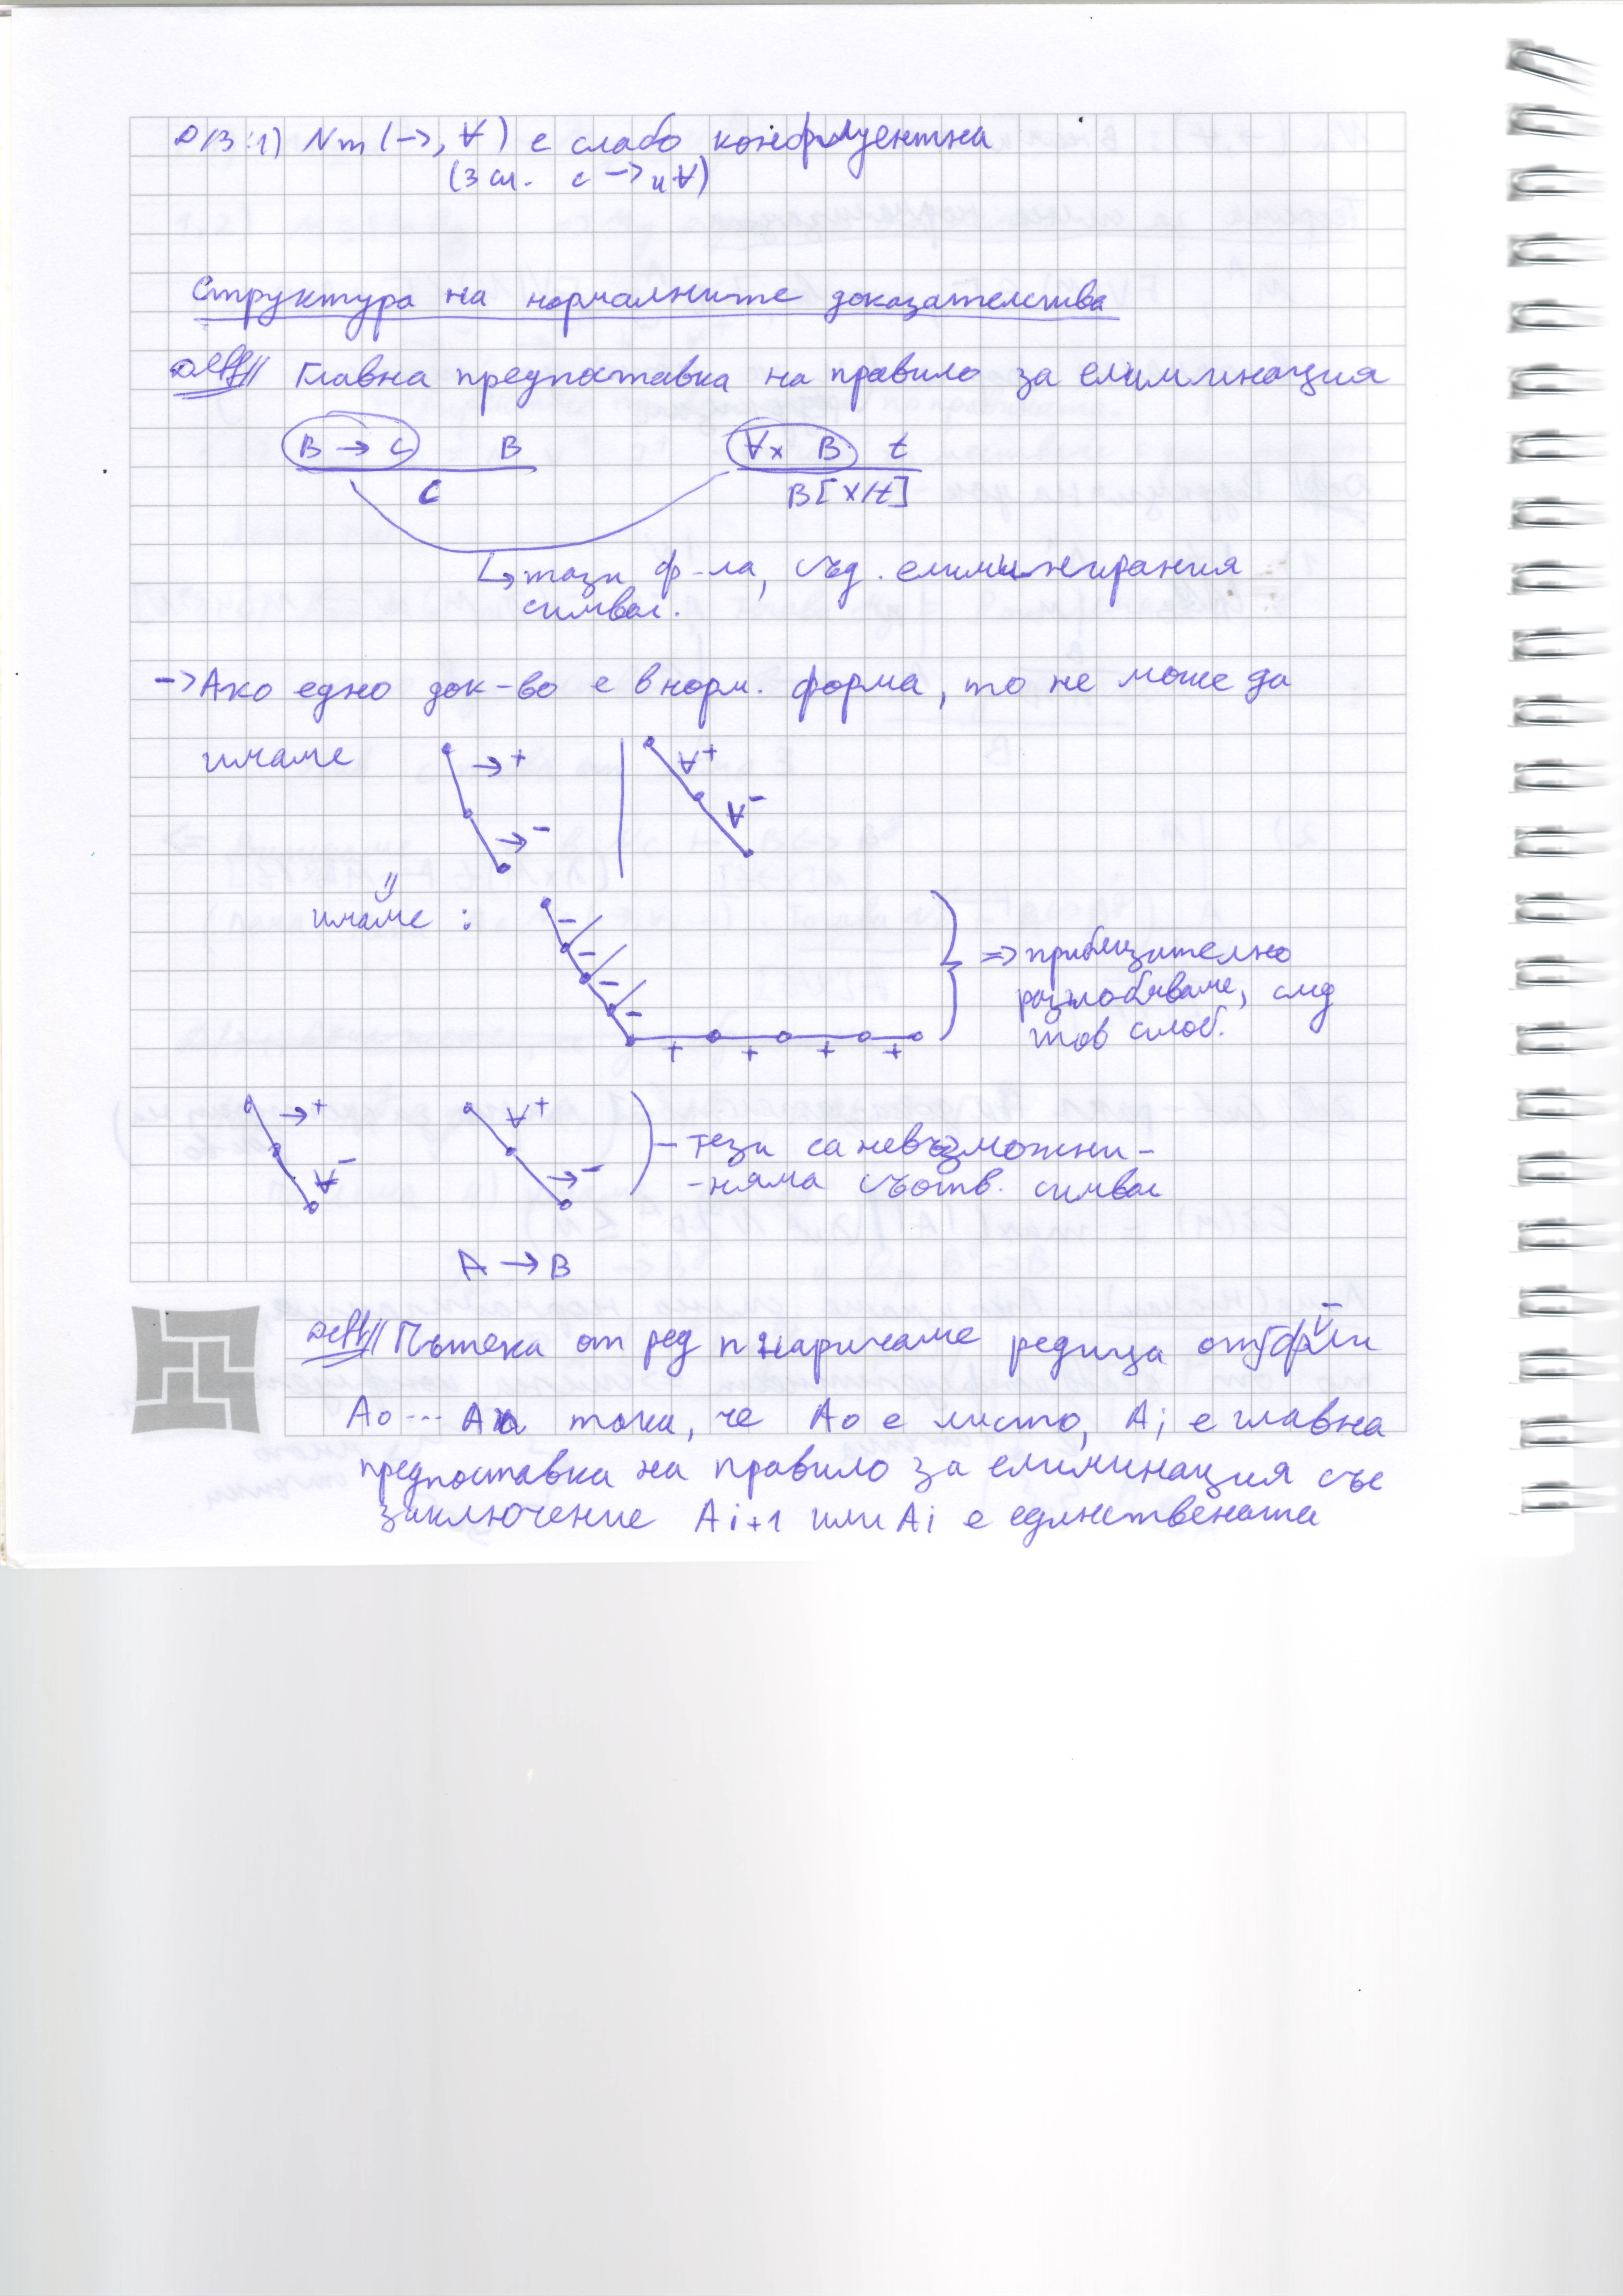 Д/З:1) Nm (→, ∀) е слабо конфлуентна
(3 сл. с → и ∀)
Структура на нормалните доказателства
Деф// Главна предпоставка на правило за елиминация
B → C B ∀x B t
C B[x/t]
↳ тази ф-ла, съд. елиминирания
символ.
→ Ако едно док-во е в норм. форма, то не може да
имаме →+ ∀+
→- ∀-
имаме : - - - -
⇒ приблизително
разглобяваме, след
тов сглоб.
+ + + +
→+ ∀+
- тези са невъзможни -
∀- →-
- няма съотв. символ
A → B
Деф// Пътека от ред n наричаме редица от ф-ли
A0 ... An така, че A0 е листо, Ai е главна
предпоставка на правило за елиминация със
заключение Ai+1 или Ai е единствената